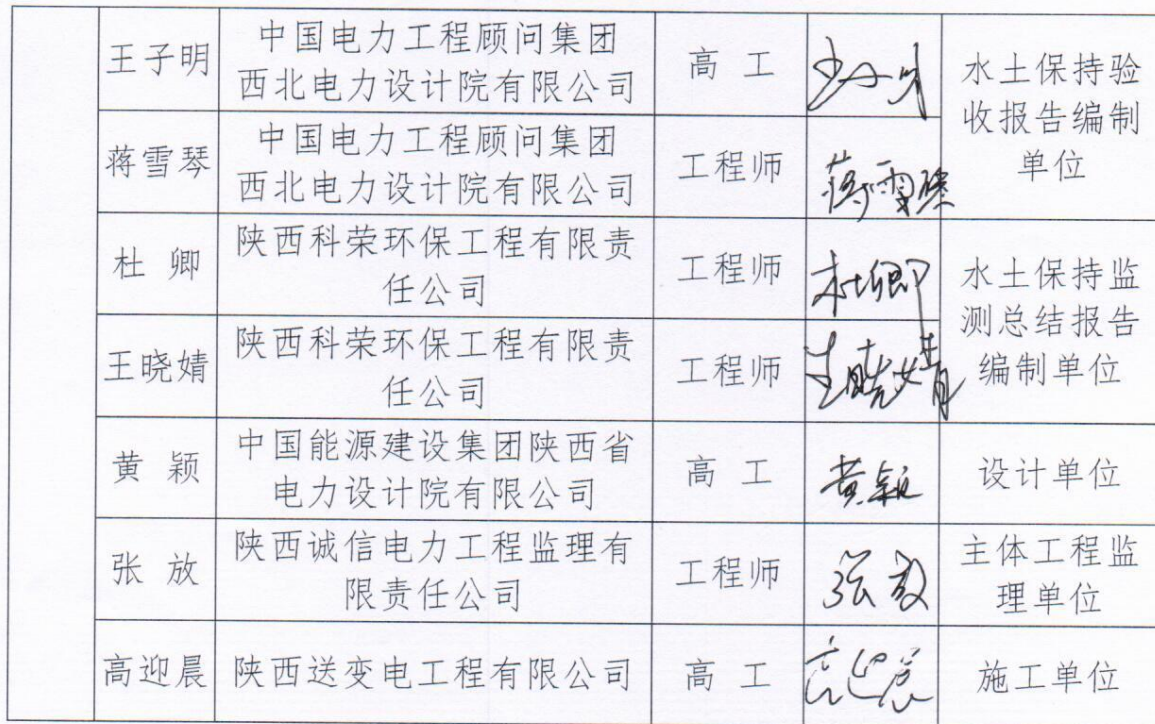 王子明
中国电力工程顾问集团
西北电力设计院有限公司
高 工
水土保持验
收报告编制
单位
蒋雪琴
中国电力工程顾问集团
西北电力设计院有限公司
工程师
蒋雪琴
杜 卿
陕西科荣环保工程有限责
任公司
工程师
杜卿
水土保持监
测总结报告
编制单位
王晓婧
陕西科荣环保工程有限责
任公司
工程师
王晓婧
黄 颖
中国能源建设集团陕西省
电力设计院有限公司
高 工
黄颖
设计单位
张 放
陕西诚信电力工程监理有
限责任公司
工程师
张放
主体工程监
理单位
高迎晨
陕西送变电工程有限公司
高 工
高迎晨
施工单位